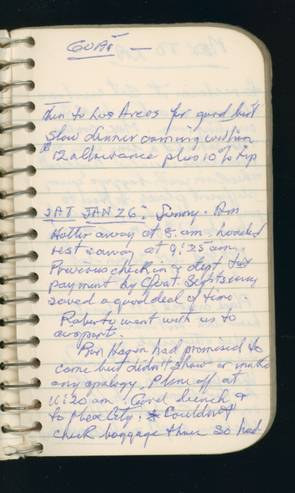 GUAT —
Then to Los Arcos for good but
slow dinner coming within
$12 allowance plus 10% tip
SAT JAN 26: Sunny. Pam
Hotter away at 8 am. headed
rest away at 9:25 am.
Previous check in & dept tax
payment by Guat. Sightseeing
saved a good deal of time
Roberto went with us to
airport.
Pin Hagen had promised to
come but didn't show or make
any apology. Plane off at
11:20 am Good lunch &
to Mex City. Couldn't
check baggage thru so had